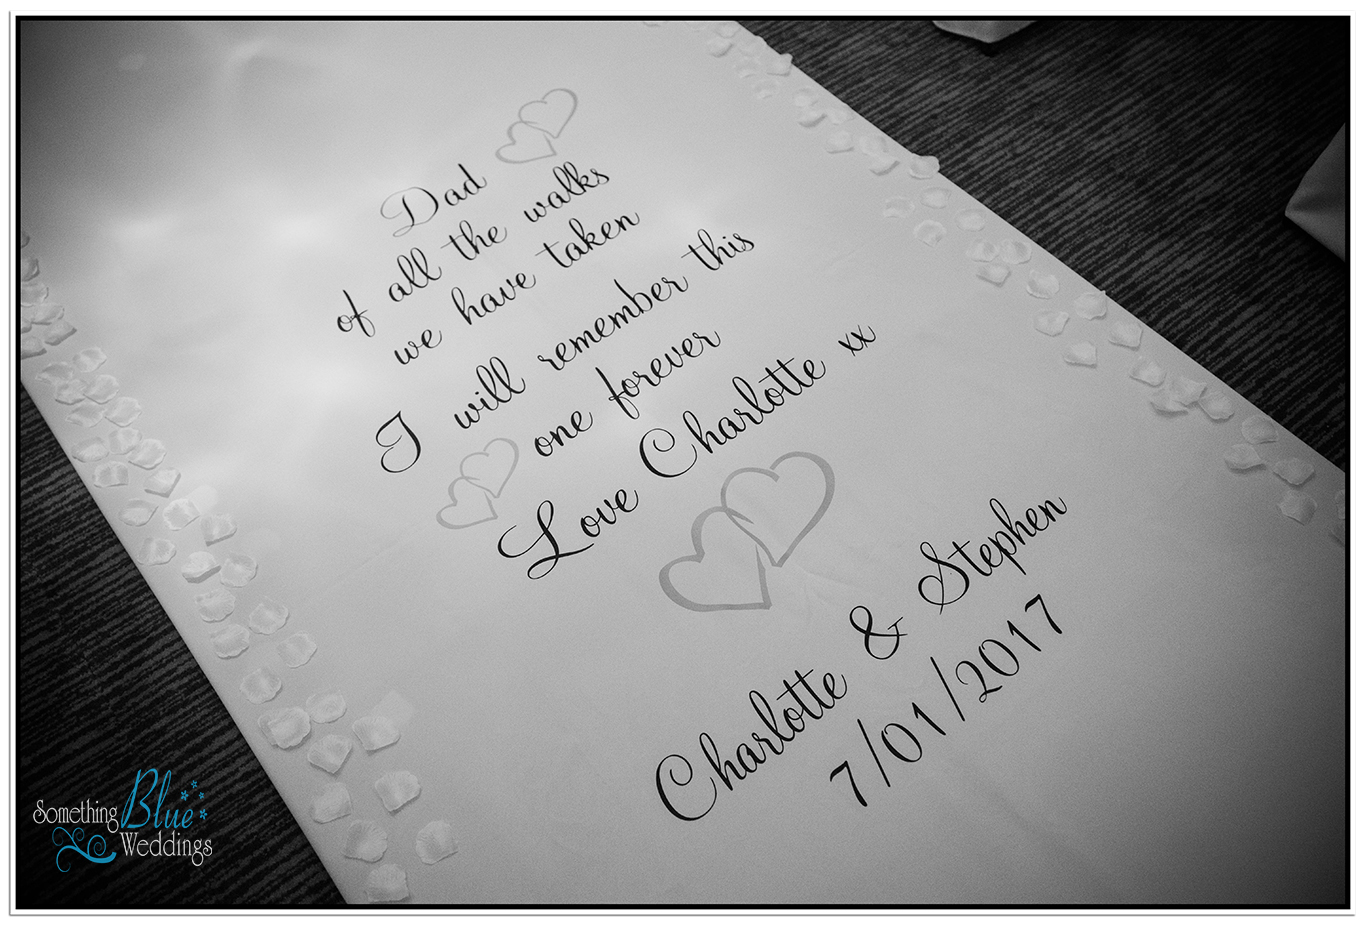 Dad
of all the walks
we have taken
I will remember this
one forever
Love Charlotte xx
Charlotte & Stephen
7/01/2017
Something Blue
Weddings